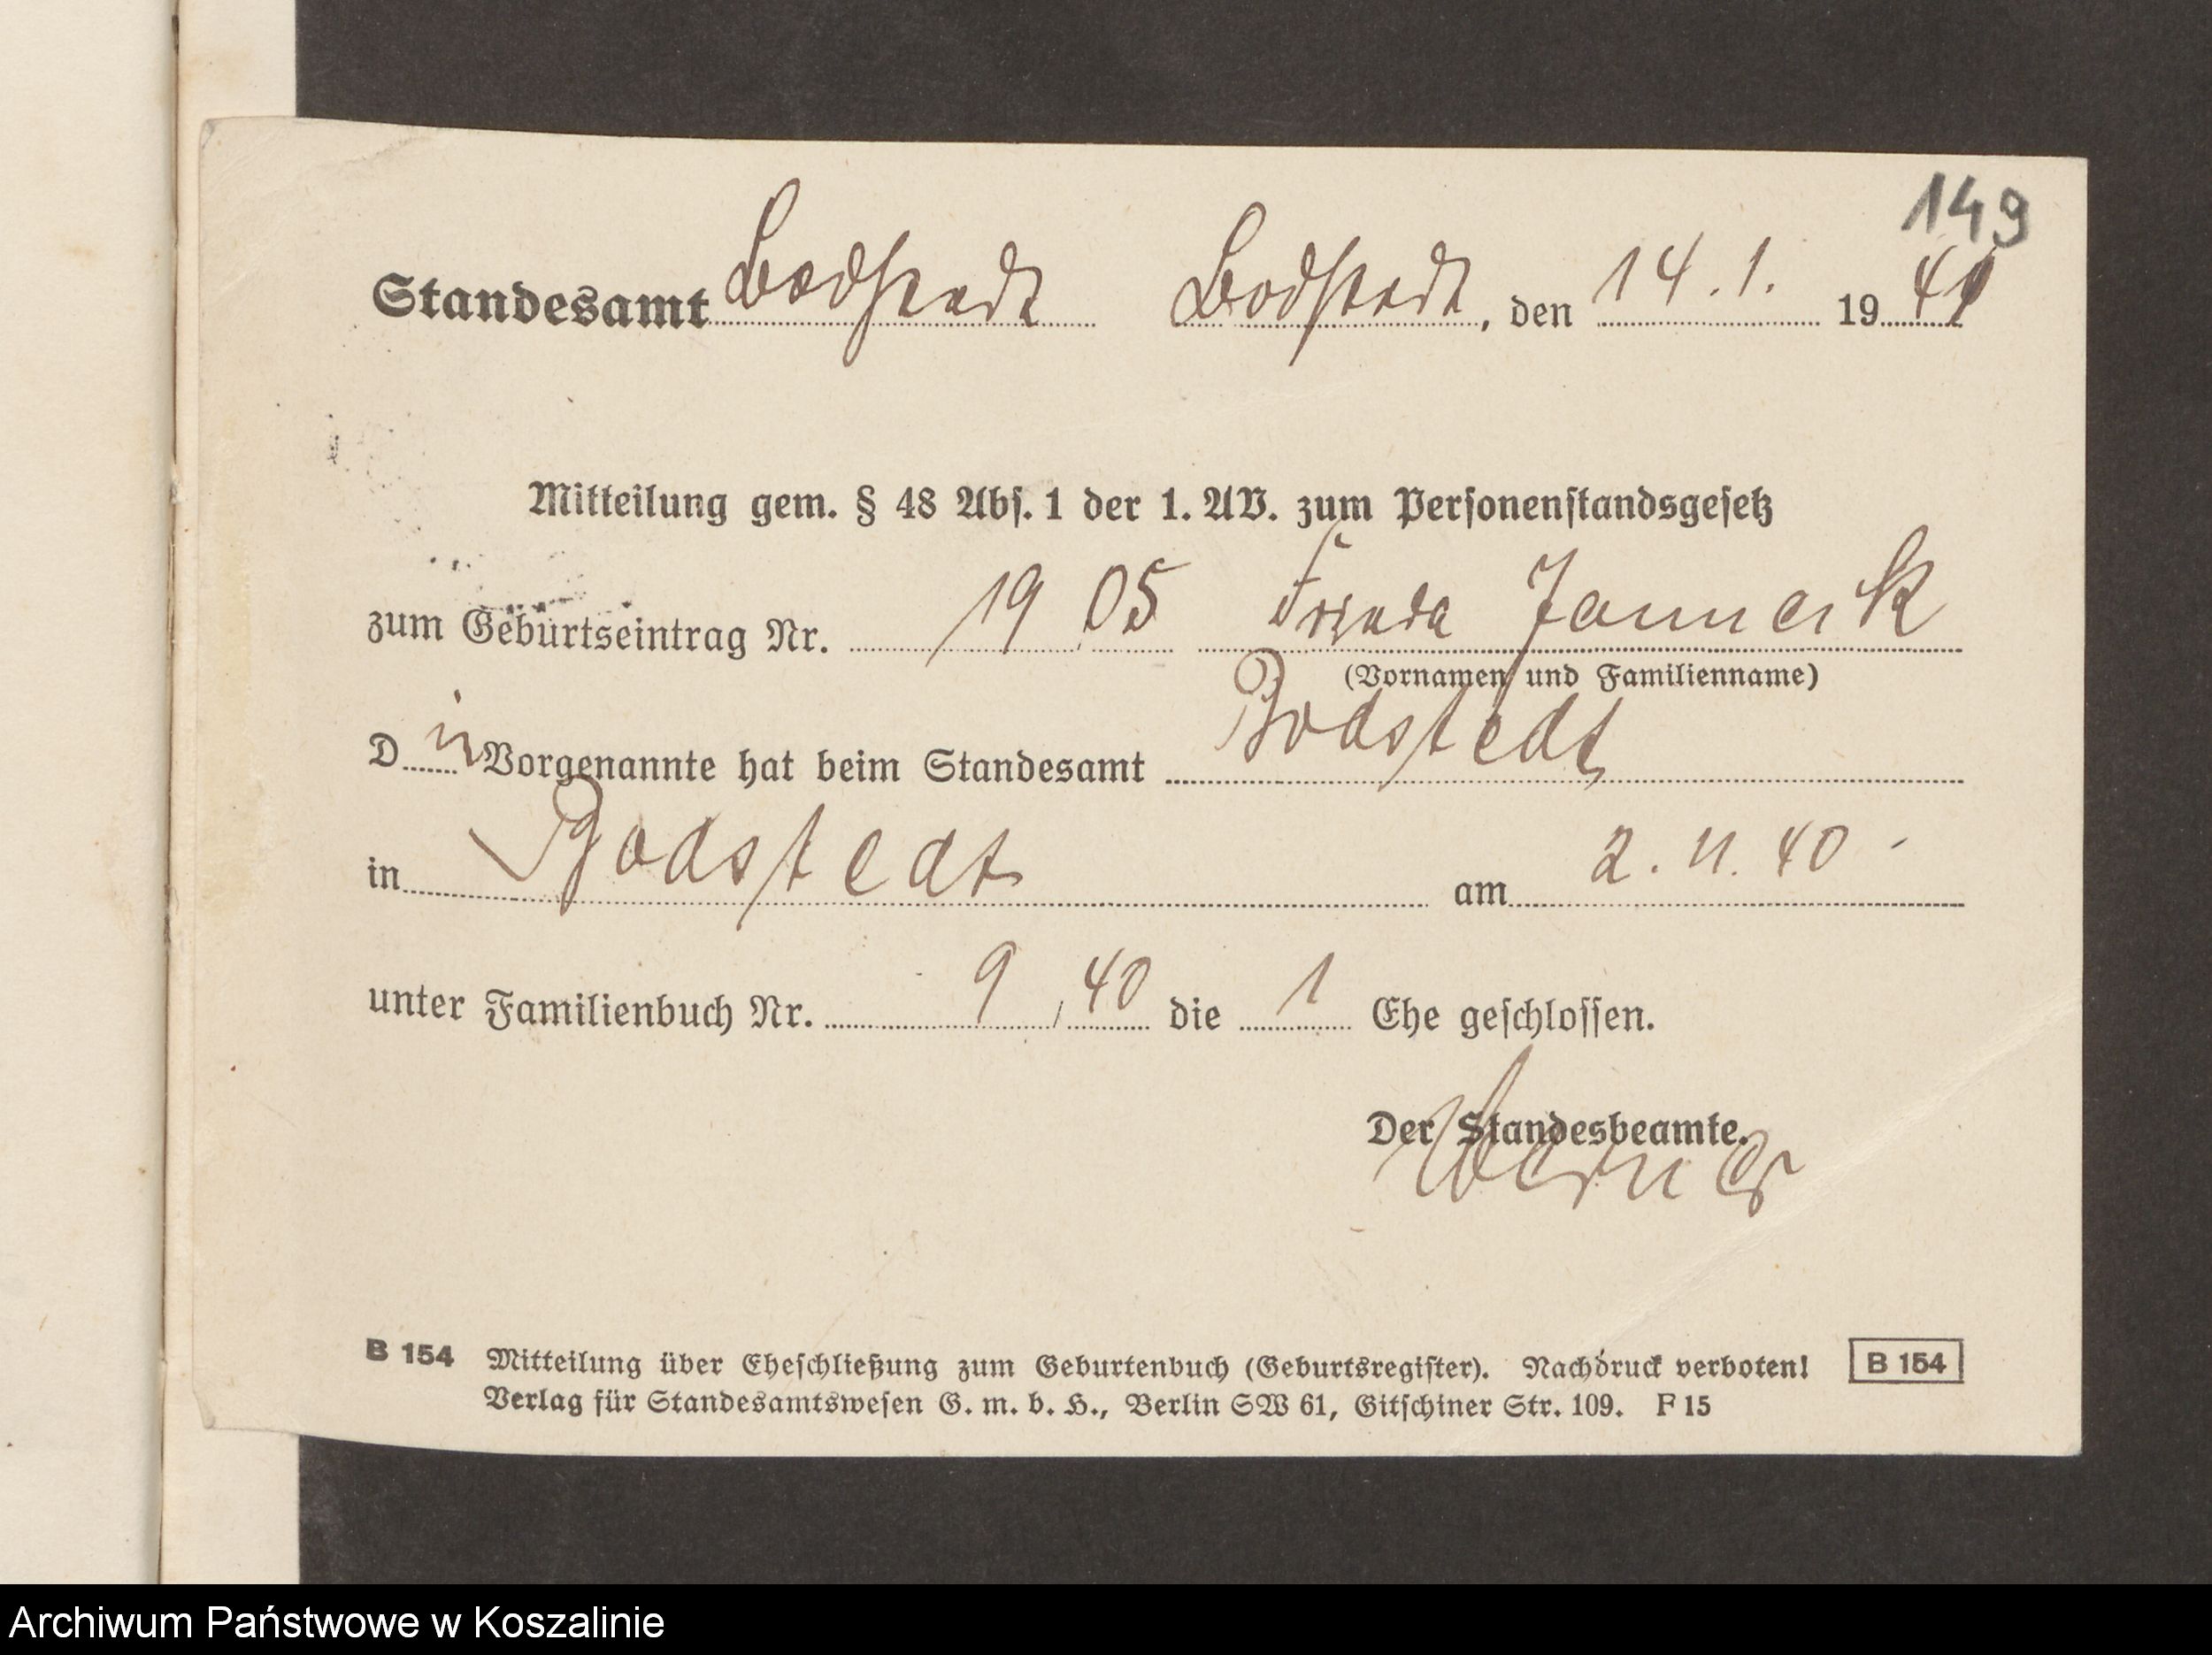 149
Standesamt Bodstedt Bodstedt, den 14.1. 1941
Mitteilung gem. § 48 Abs. 1 der 1. AV. zum Personenstandsgesetz
zum Geburtseintrag Nr. 19/05 Frieda Jannack
(Vornamen und Familienname)
D ie Vorgenannte hat beim Standesamt Bodstedt
in Bodstedt am 2. 11. 40 -
unter Familienbuch Nr. 9/40 die 1 Ehe geschlossen.
Der Standesbeamte.
Werner
B 154 Mitteilung über Eheschließung zum Geburtenbuch (Geburtsregister). Nachdruck verboten! B 154
Verlag für Standesamtswesen G. m. b. H., Berlin SW 61, Gitschiner Str. 109. F 15
Archiwum Państwowe w Koszalinie